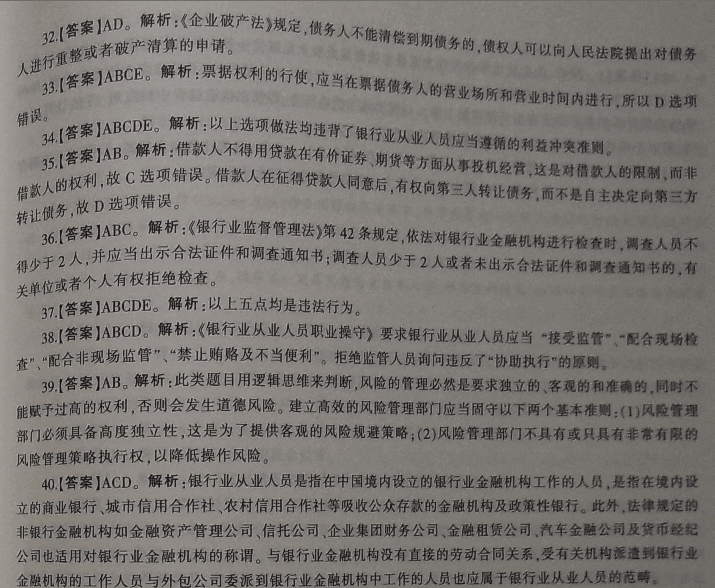 32.【答案】AD。解析:《企业破产法》规定,债务人不能清偿到期债务的,债权人可以向人民法院提出对债务
人进行重整或者破产清算的申请。
33.【答案】ABCE。解析:票据权利的行使,应当在票据债务人的营业场所和营业时间内进行,所以 D 选项
错误。
34.【答案】ABCDE。解析:以上选项做法均违背了银行业从业人员应当遵循的利益冲突准则。
35.【答案】AB。解析:借款人不得用贷款在有价证券、期货等方面从事投机经营,这是对借款人的限制,而非
借款人的权利,故 C 选项错误。借款人在征得贷款人同意后,有权向第三人转让债务,而不是自主决定向第三方
转让债务,故 D 选项错误。
36.【答案】ABC。解析:《银行业监督管理法》第 42 条规定,依法对银行业金融机构进行检查时,调查人员不
得少于 2 人,并应当出示合法证件和调查通知书;调查人员少于 2 人或者未出示合法证件和调查通知书的,有
关单位或者个人有权拒绝检查。
37.【答案】ABCDE。解析:以上五点均是违法行为。
38.【答案】ABCD。解析:《银行业从业人员职业操守》要求银行业从业人员应当“接受监管”、“配合现场检
查”、“配合非现场监管”、“禁止贿赂及不当便利”。拒绝监管人员询问违反了“协助执行”的原则。
39.【答案】AB。解析:此类题目用逻辑思维来判断,风险的管理必然是要求独立的、客观的和准确的,同时不
能赋予过高的权利,否则会发生道德风险。建立高效的风险管理部门应当固守以下两个基本准则:(1)风险管理
部门必须具备高度独立性,这是为了提供客观的风险规避策略;(2)风险管理部门不具有或只具有非常有限的
风险管理策略执行权,以降低操作风险。
40.【答案】ACD。解析:银行业从业人员是指在中国境内设立的银行业金融机构工作的人员,是指在境内设
立的商业银行、城市信用合作社、农村信用合作社等吸收公众存款的金融机构及政策性银行。此外,法律规定的
非银行金融机构如金融资产管理公司、信托公司、企业集团财务公司、金融租赁公司、汽车金融公司及货币经纪
公司也适用对银行业金融机构的称谓。与银行业金融机构没有直接的劳动合同关系,受有关机构派遣到银行业
金融机构的工作人员与外包公司委派到银行业金融机构中工作的人员也应属于银行业从业人员的范畴。